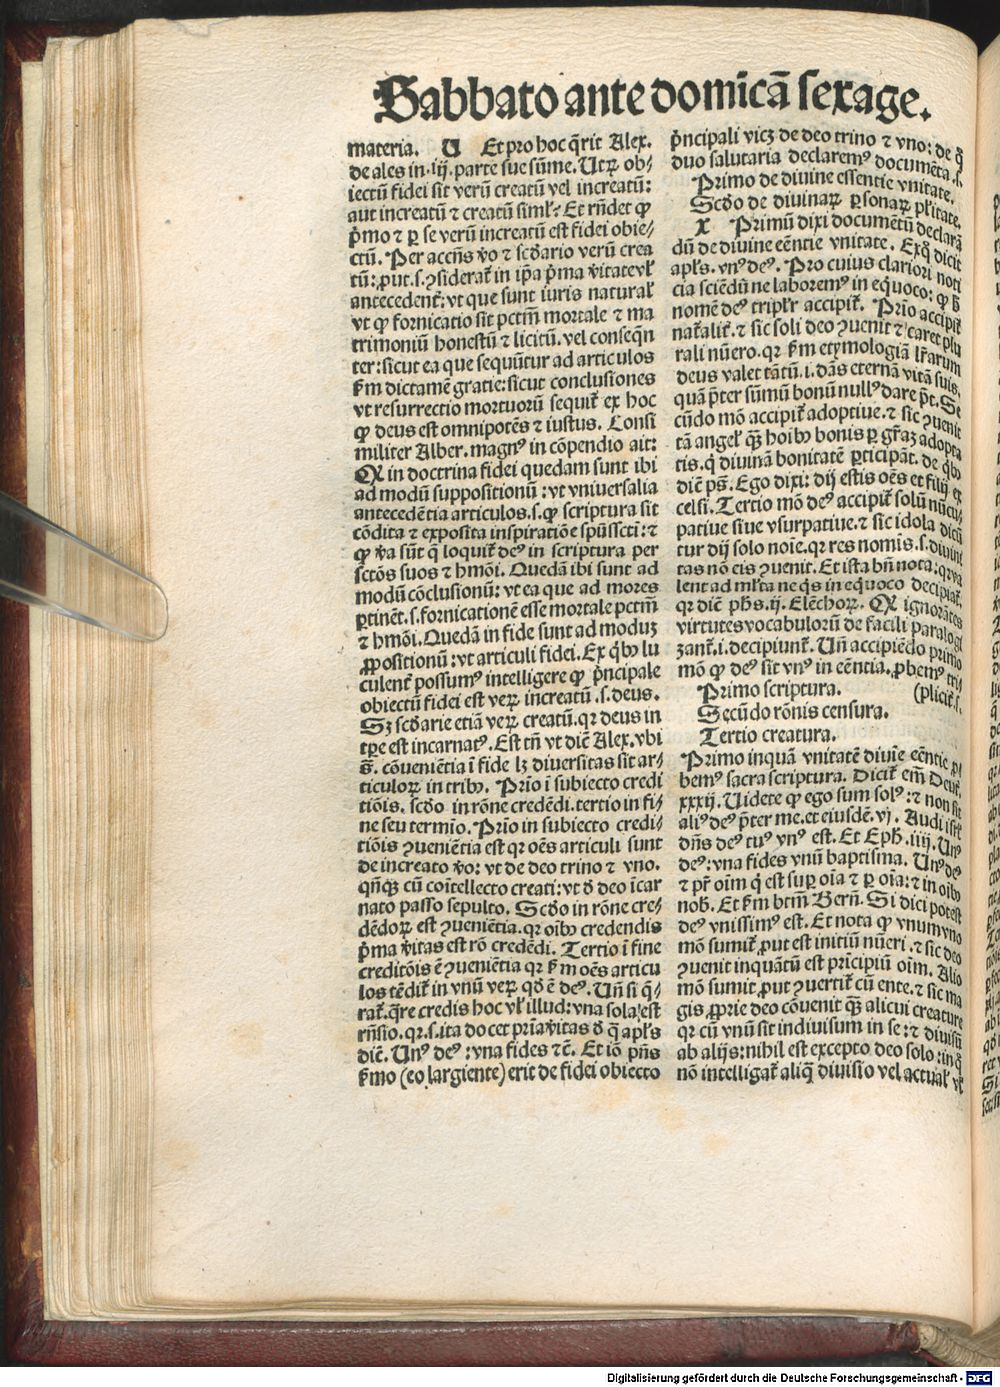 Sabbato ante domicā sexage.
materia. V Et pro hoc q̄rit Alex.
de ales in .iij. parte sue sūme. Utꝝ ob⸗
iectū fidei sit verū creatū vel increatū:
aut increatū ⁊ creatū siml'? Et rn̄det ꝙ
p̄mo ⁊ ꝑ se verū increatū est fidei obie⸗
ctū. Per accn̄s v̄o ⁊ scd̄ario verū crea
tū: ꝓut .s. ꝯsiderat̄ in ip̄a p̄ma v̄itate vl'
antecedent̄: vt que sunt iuris natural'
vt ꝙ fornicatio sit pctm̄ mortale ⁊ ma
trimoniū honestū ⁊ licitū. vel conseqn̄
ter: sicut ea que sequūtur ad articulos
ẜm dictamē gratie: sicut conclusiones
vt resurrectio mortuorū sequit̄ ex hoc
ꝙ deus est omnipotēs ⁊ iustus. Consi
militer Alber. magnꝰ in cōpendio ait:
Qꝛ in doctrina fidei quedam sunt ibi
ad modū suppositionū: vt vniversalia
antecedētia articulos .s. ꝙ scriptura sit
cōdita ⁊ exposita inspiratiōe spūsscti: ⁊
ꝙ v̄a sūt q̄ loquit̄ deꝰ in scriptura per
sctōs suos ⁊ hmōi. Quedā ibi sunt ad
modū cōclusionū: vt ea que ad mores
ꝑtinēt .s. fornicationē esse mortale pctm̄
⁊ hmōi. Quedā in fide sunt ad moduꝫ
ꝓpositionū: vt articuli fidei. Ex qͥbꝰ lu
culent̄ possumꝰ intelligere ꝙ p̄ncipale
obiectū fidei est veꝝ increatū .s. deus.
Sꝫ scd̄arie etiā veꝝ creatū. qꝛ deus in
tꝑe est incarnatꝰ. Est tn̄ vt diē Alex. vbi
s̄. cōueniētia ī fide lꝫ diuersitas sit ar⸗
ticuloꝝ in tribꝰ. Prīo ī subiecto credi
tiōis. scd̄o in rōne credēdi. tertio in fi⸗
ne seu termīo. Prīo in subiecto credi⸗
tiōis ꝯueniētia est qꝛ oēs articuli sunt
de increato v̄o: vt de deo trino ⁊ vno.
qn̄qꝫ cū cōitellecto creati: vt đ deo īcar
nato passo sepulto. Scd̄o in rōne cre⸗
dēdoꝝ est ꝯueniētia. qꝛ oībꝰ credendis
p̄ma v̄itas est rō credēdi. Tertio ī fine
creditōis ē ꝯueniētia qꝛ ẜm oēs articu
los tēdit̄ in vnū veꝝ qđ ē deꝰ. Un̄ si q̄⸗
rat̄. q̄re credis hoc vl' illud: vna sola est
rn̄sio. qꝛ .s. ita docet prīa v̄itas đ q̄ apl's
diē. Unꝰ deꝰ: vna fides ⁊ē. Et iō pn̄s
ẜmo (eo largiente) erit de fidei obiecto
p̄ncipali vicꝫ de deo trino ⁊ vno: de q̄
duo salutaria declaremꝰ documēta .s.
Primo de diuine essentie vnitate.
Scd̄o de diuinaꝝ ꝑsonaꝝ pl'itate.
X Primū dixi documētū declarā
dū de diuine eēntie vnitate. Exq̄ dicit
apl's. vnꝰ deꝰ. Pro cuius clariori noti
cia sciēdū ne laboremꝰ in eq̄uoco: ꝙ h̄
nomē deꝰ tripl'r accipit̄. Prīo accipit̄
nat̄alit̄. ⁊ sic soli deo ꝯuenit ⁊ caret plu
rali nūero. qꝛ ẜm etymologiā lr̄arum
deus valet tātū .i. dās eternā vitā suis.
quā p̄ter sūmū bonū nullꝰ dare p̄t. Se
cūdo mō accipit̄ adoptiue. ⁊ sic ꝯuenit
tā angel' qꝫ hoībꝰ bonis ꝑ gr̄aꝫ adopta
tis. qͥ diuinā bonitatē ꝑticipāt. de qͥbꝰ
diē ps̄. Ego dixi: dij estis oēs et filij ex
celsi. Tertio mō deꝰ accipit̄ solū nūcu⸗
patiue siue vsurpatiue. ⁊ sic idola dicū
tur dij solo noīe. qꝛ res nomīs .s. diuini
tas nō eis ꝯuenit. Et ista bn̄ nota: qꝛ va
lent ad ml'ta ne qͥs in equoco decipiat̄.
qꝛ diē ph̄s .ij. Elēchoꝝ. Qꝛ ignorātes
virtutes vocabulorū de facili paralogi
zant̄ .i. decipiunt̄. Un̄ accipiēdo primo
mō ꝙ deꝰ sit vnꝰ in eēntia. ꝓbemꝰ tri⸗
Primo scriptura. (plicit̄ .s.
Secūdo rōnis censura.
Tertio creatura.
Primo inquā vnitatē diuīe eēntie ꝓ⸗
bemꝰ sacra scriptura. Dicit̄ em̄ Deut̄.
xxxij. Uidete ꝙ ego sum solꝰ: ⁊ non sit
aliꝰ deꝰ p̄ter me. et eiusdē .vj. Audi isrl'
dn̄s deꝰ tuꝰ vnꝰ est. Et Eph̄. iiij. Unꝰ
deꝰ: vna fides vnū baptisma. Unꝰ deꝰ
⁊ pr̄ oīm qͥ est suꝑ oīa ⁊ ꝑ oīa: ⁊ in oībꝰ
nob̄. Et ẜm btm̄ Bern̄. Si dici potest
deꝰ vnissimꝰ est. Et nota ꝙ vnum vno
mō sumit̄ ꝓut est initiū nūeri. ⁊ sic deo
ꝯuenit inquātū est prīcipiū oīm. Alio
mō sumit̄ ꝓut ꝯuertit̄ cū ente. ⁊ sic ma
gis ꝓprie deo cōuenit qꝫ alicui creature
qꝛ cū vnū sit indiuisum in se: ⁊ diuisū
ab alijs: nihil est excepto deo solo: in q̄
nō intelligat̄ aliq̄ diuisio vel actual' vl'
Digitalisierung gefördert durch die Deutsche Forschungsgemeinschaft - DFG